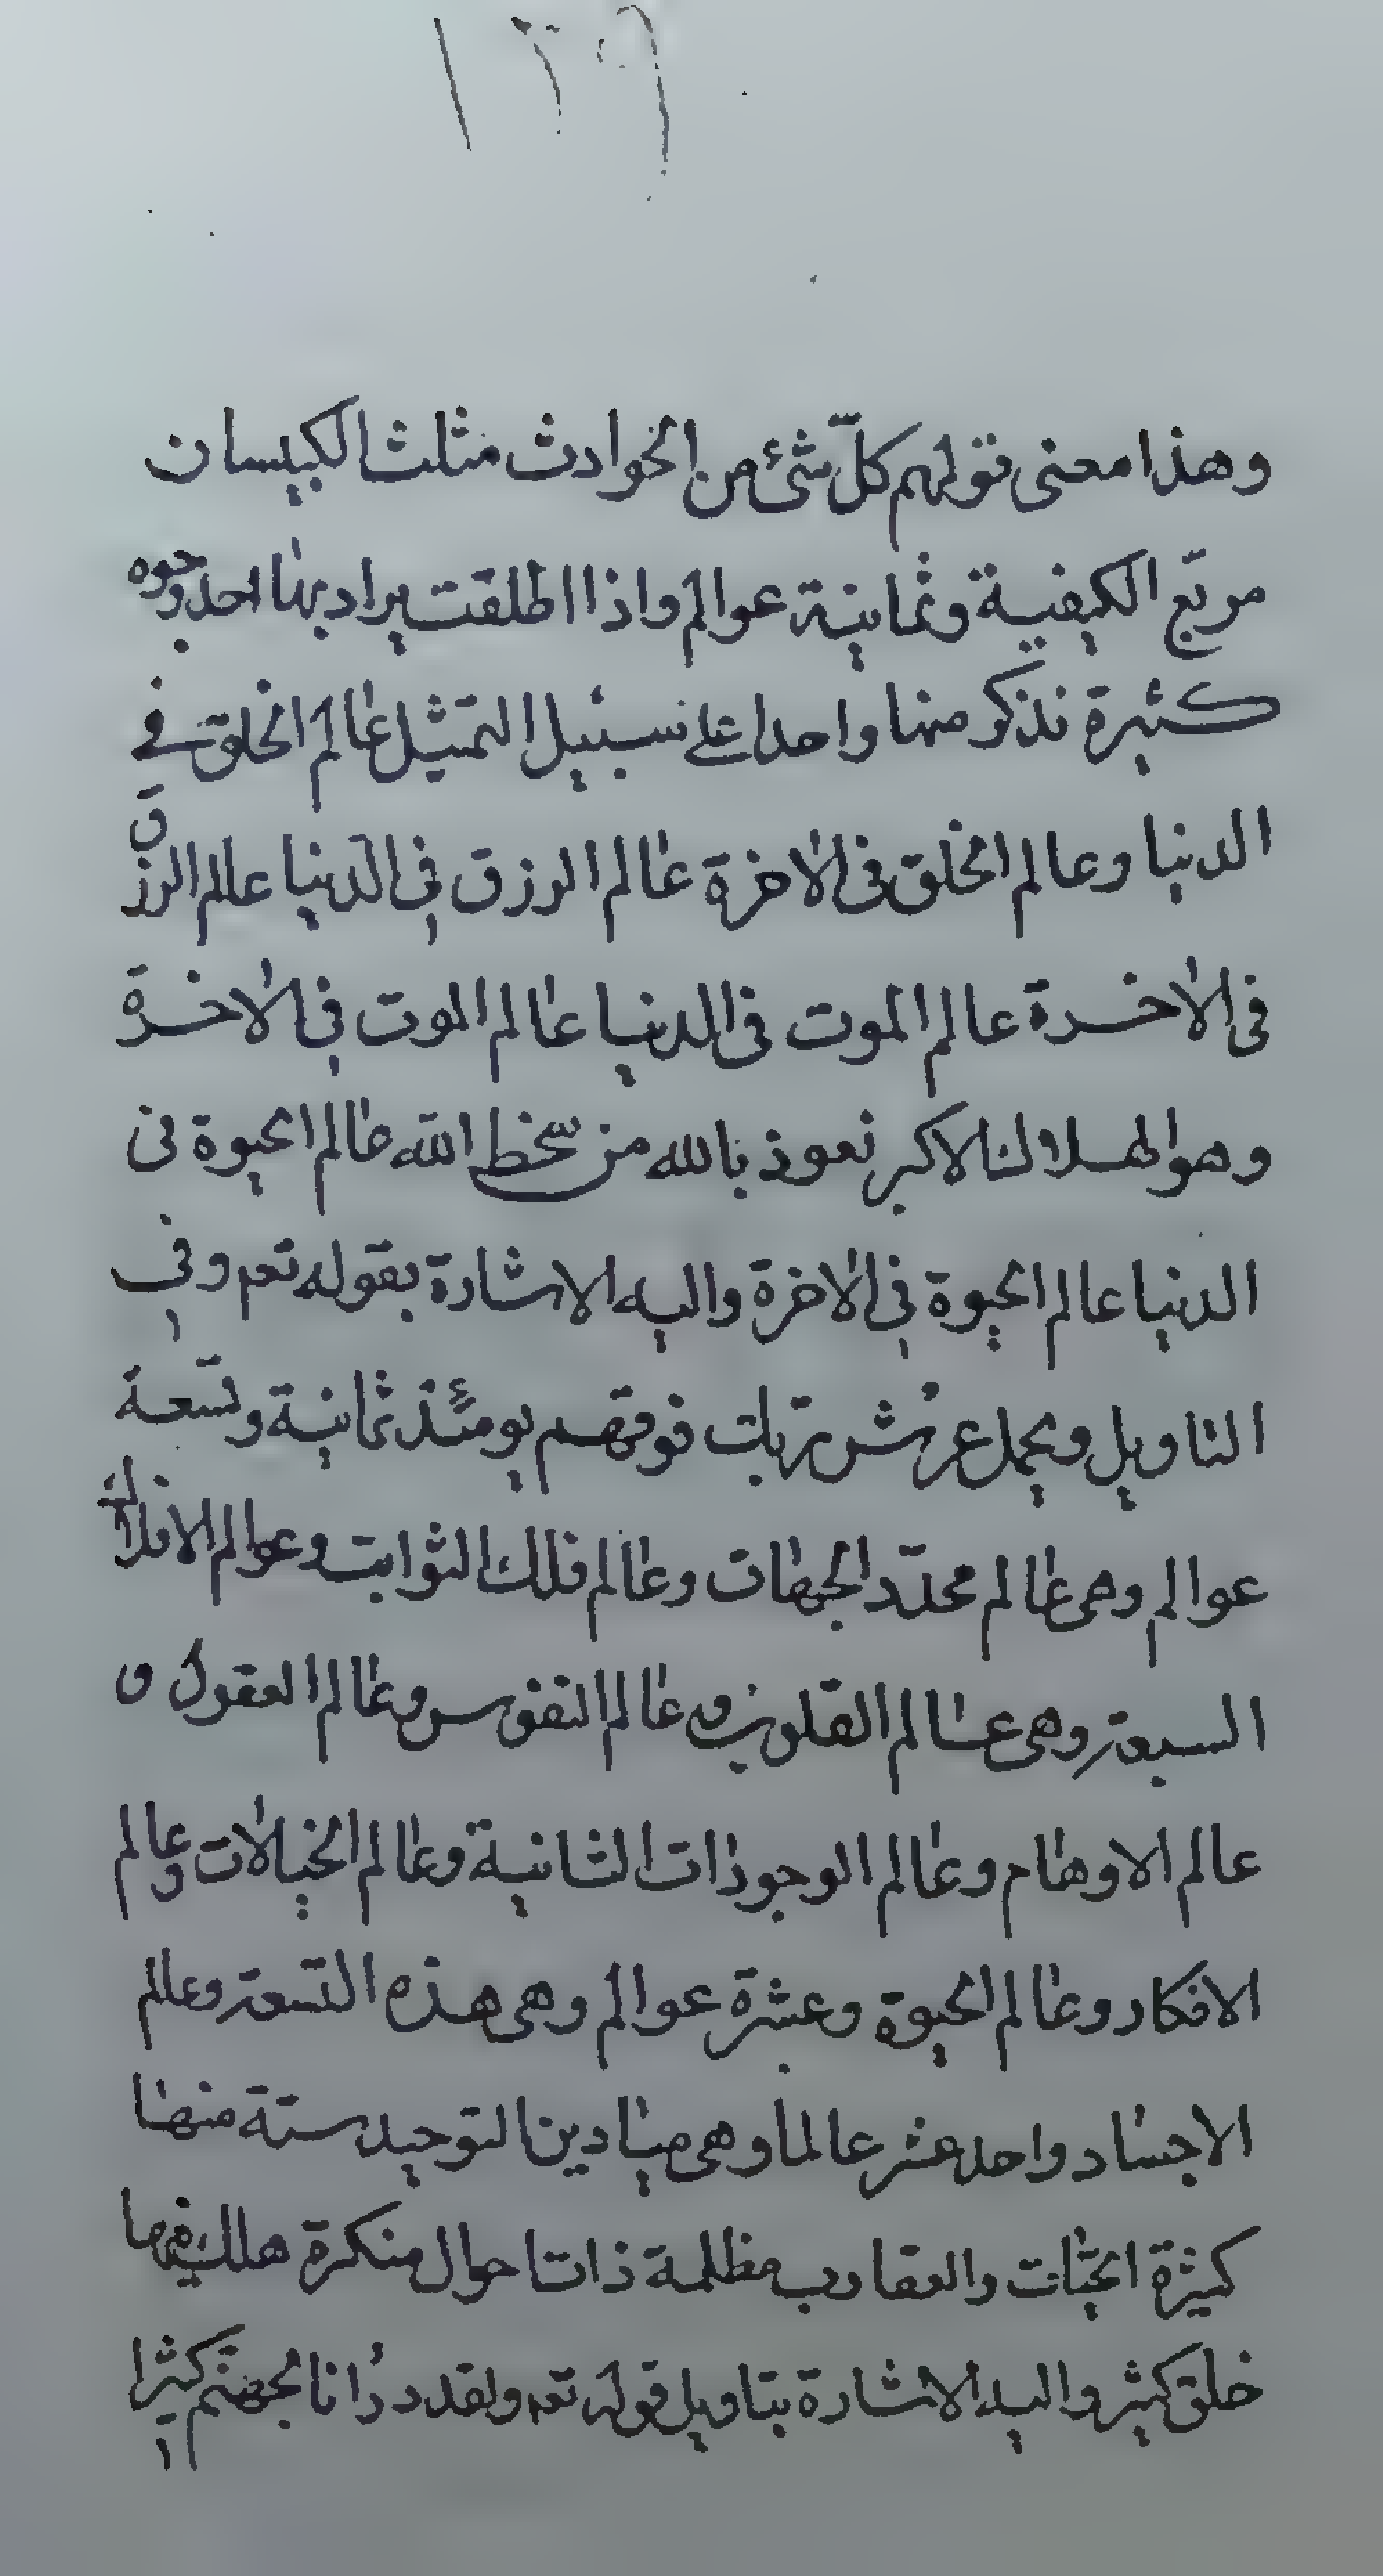 ١٣٩
وهذا معنى قولهم كلّ شئ من الحوادث مثلث الكيان
مربّع الكيفية وثمانية عوالم واذا اطلقت يراد بها احد وجوه
كثيرة نذكر منها واحدا على سبيل التمثيل عالم الخلق في
الدنيا وعالم الخلق في الاخرة عالم الرزق في الدنيا عالم الرزق
في الاخرة عالم الموت في الدنيا عالم الموت في الاخرة
وهو الهلاك الاكبر نعوذ بالله من سخط الله عالم الحيوة في
الدنيا عالم الحيوة في الاخرة واليه الاشارة بقوله تعم وفي
التاويل ويحمل عرش ربك فوقهم يومئذ ثمانية وتسعة
عوالم وهي عالم محدّد الجهات وعالم فلك الثوابت وعوالم الافلاك
السبعة وهي عالم القلوب و عالم النفوس وعالم العقول و
عالم الاوهام وعالم الوجودات الثانية وعالم الخيالات وعالم
الافكار وعالم الحيوة وعشرة عوالم وهي هذه التسعة وعالم
الاجساد واحد عشر عالما وهي ميادين التوحيد ستة منها
كثيرة الحيّات والعقارب مظلمة ذات احوال منكرة هلك فيها
خلق كثير واليه الاشارة بتاويل قوله تعم ولقد ذرانا لجهنم كثيرا